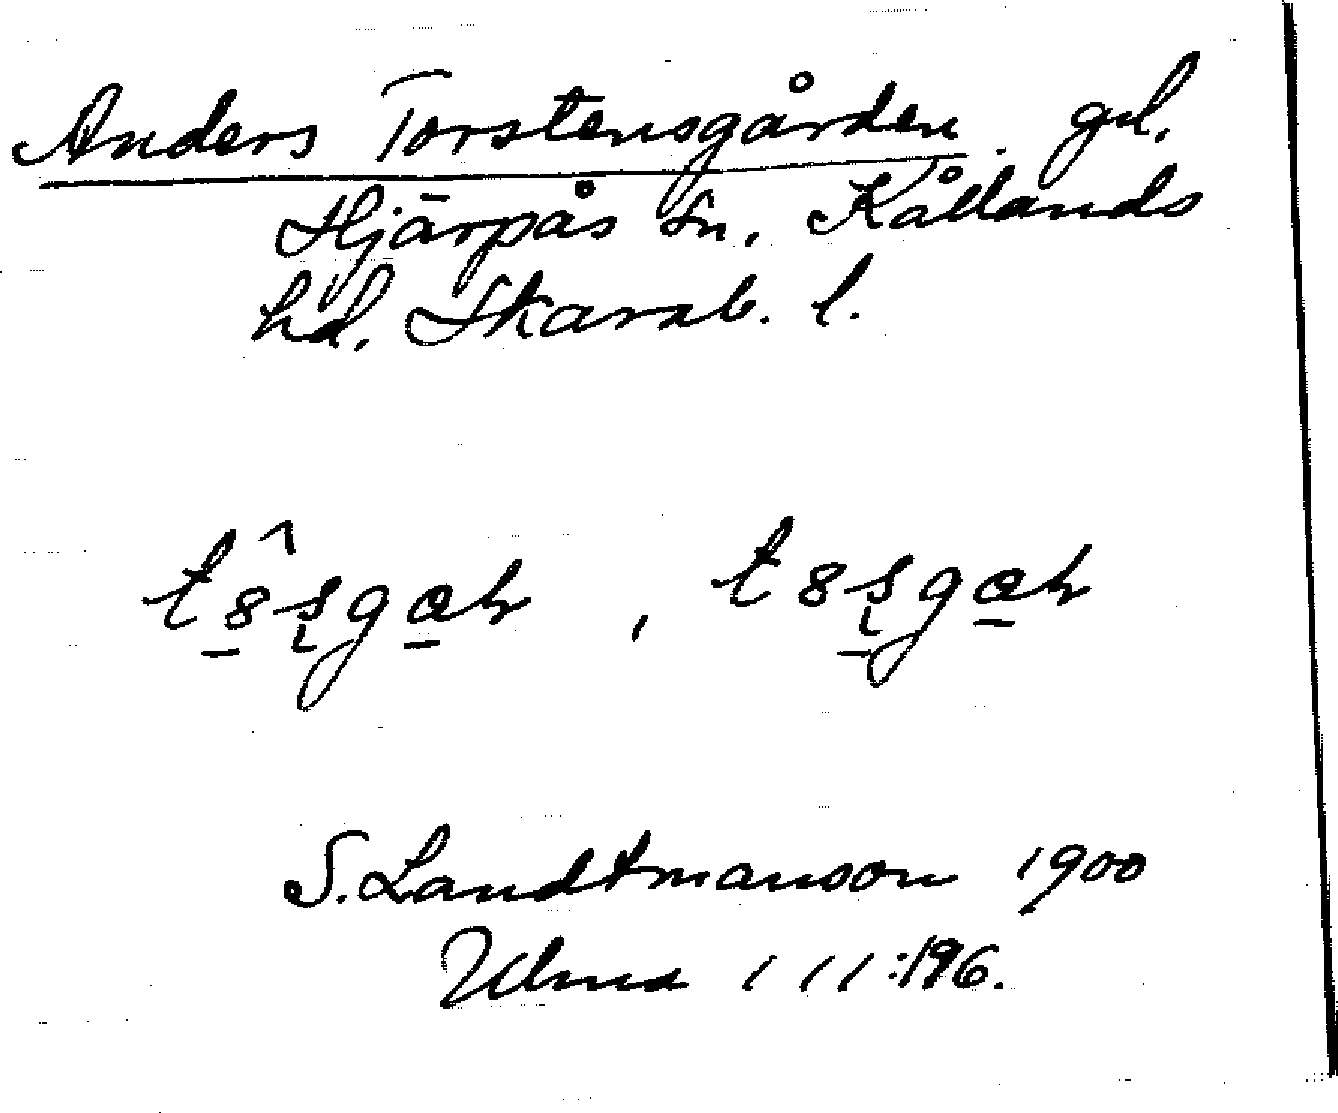 Anders Torstensgården. gd.
Hjärpås sn, Kållands
hd. Skarab. l.
S. Landtmanson 1900
Ulma 111:196.